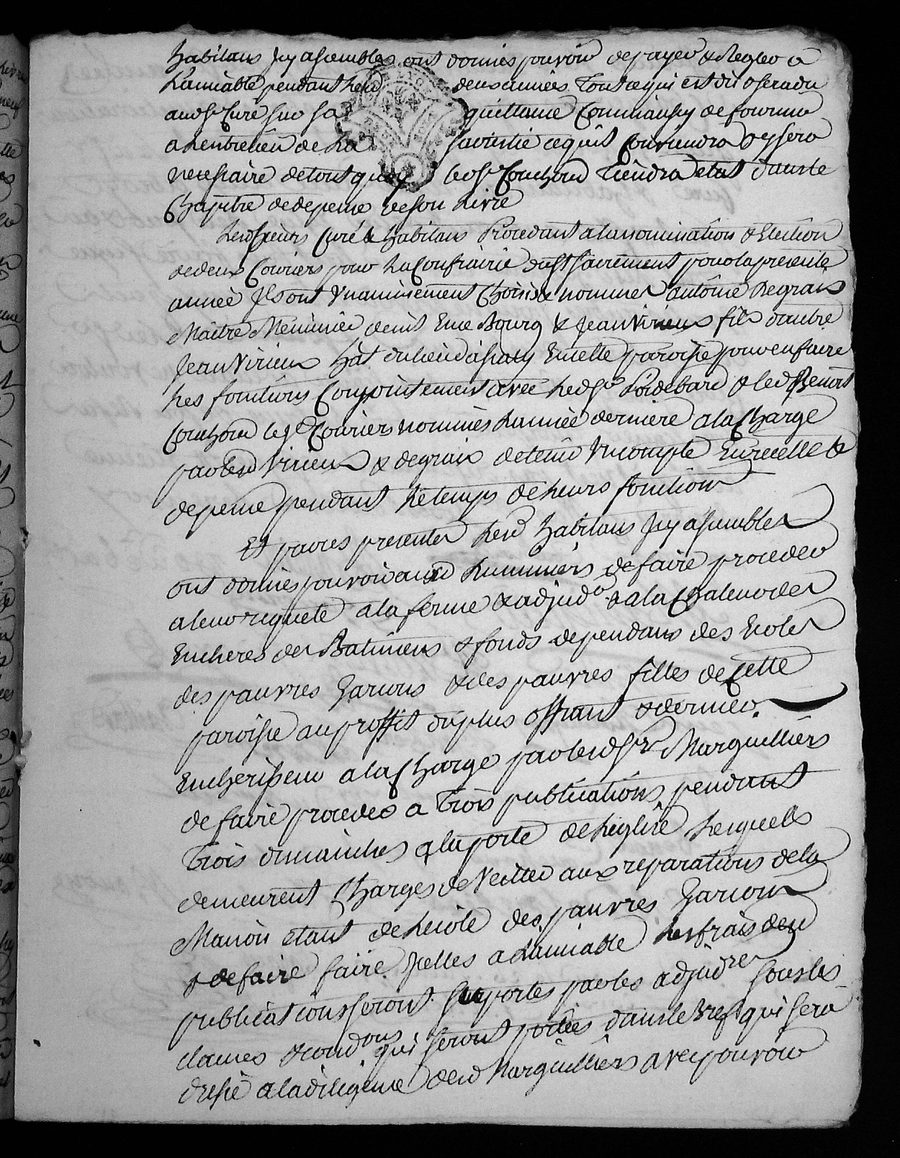 habitans jcy assembles ont donnés pouvoir de payer & Regler a
L'amiable pendant lesd deux années Tout ce qui est dû ou sera du
aud Sr Curé sur sa quittance Comme aussy de fournir
a L'entretien de La sacristie ce quil Conviendra & y sera
necessaire de tout quoy led Sr Couchoud Tiendra etat dans le
Chapitre de depense de son Livre
Lesd sieurs Curé & habitans Procedant a la nomination & Election
de deux Couriers pour La Confrairie du St sacrement pour la presente
année Ils ont unanimement Choisi & nommés Antoine Degraix
Maitre Menuisier dud Bourg & Jean Virieux fils d'autre
Jean Virieux habt du lieu d' en cette paroisse pour en faire
Les fonctions Conjointement avec Led Sr Poidebard & led Benoit
Couchoud Couriers nommés L'année derniere a la Charge
par lesd Virieux & degraix de tenir un compte En recette &
depense pendant Le temps de Leurs fonctions
Et par ces presentes Lesd habitans jcy assembles
ont donnés pouvoir auxd Luminiers de faire proceder
a leur requete a la ferme & adjudon & a la Chaleur des
Encheres des Batimens & fonds dependans des Ecoles
des pauvres Garçons & des pauvres filles de Cette
paroisse au proffit du plus offrant & dernier
Encherisseur a la Charge par lesd Srs Marguilliers
de faire proceder a Trois publications pendant
Trois dimanches a la porte de L'eglise Lesquels
demeurent Charges de Veiller aux reparations de la
Maison etant de L'ecole des pauvres Garçons
& de faire faire jcelles a L'amiable Les frais desd
publications seront suportes par les adjudres sous les
clauses & condons qui seront portées dans le Bref qui sera
dressé a la diligence desd Marguilliers avec pouvoir